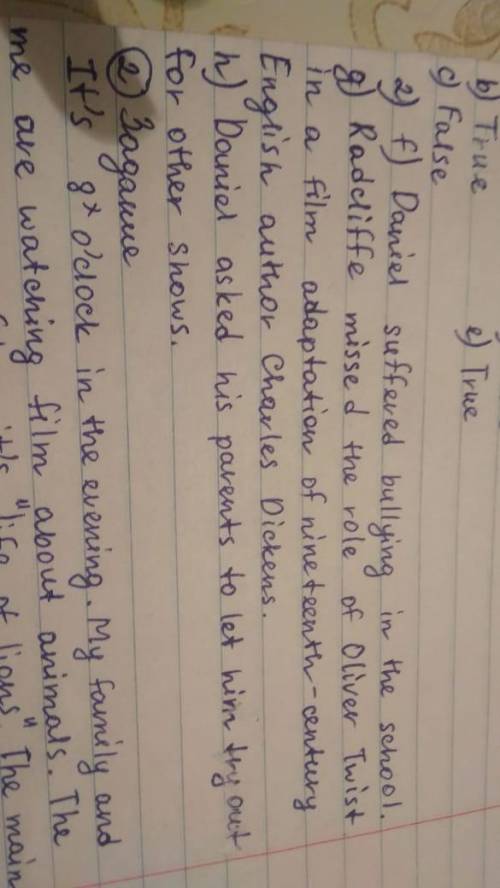 b) True e) True
c) False
2) f) Daniel suffered bullying in the school.
g) Radcliffe missed the role of Oliver Twist
in a film adaptation of nineteenth-century
English author Charles Dickens.
h) Daniel asked his parents to let him try out
for other shows.
2) Заgание
It's 8* o'clock in the evening. My family and
me are watching film about animals. The
it's "life of lions". The main